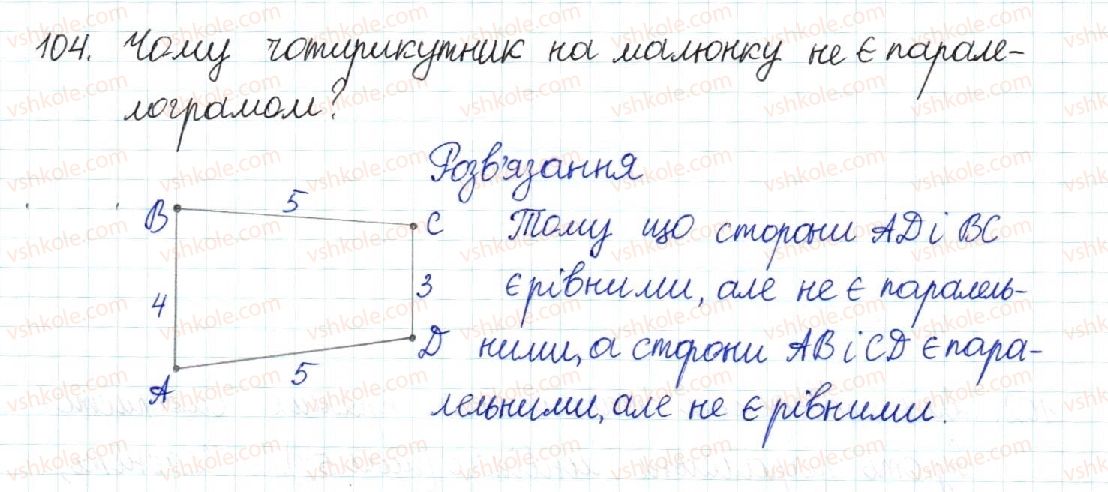 104. Чому чотирикутник на малюнку не є парале-
лограмом?
Розв'язання
B 5 C Тому що сторони AD і BC
4 3 є рівними, але не є паралель-
D ними, а сторони AB і CD є пара-
A 5
лельними, але не є рівними.
vshkole.com